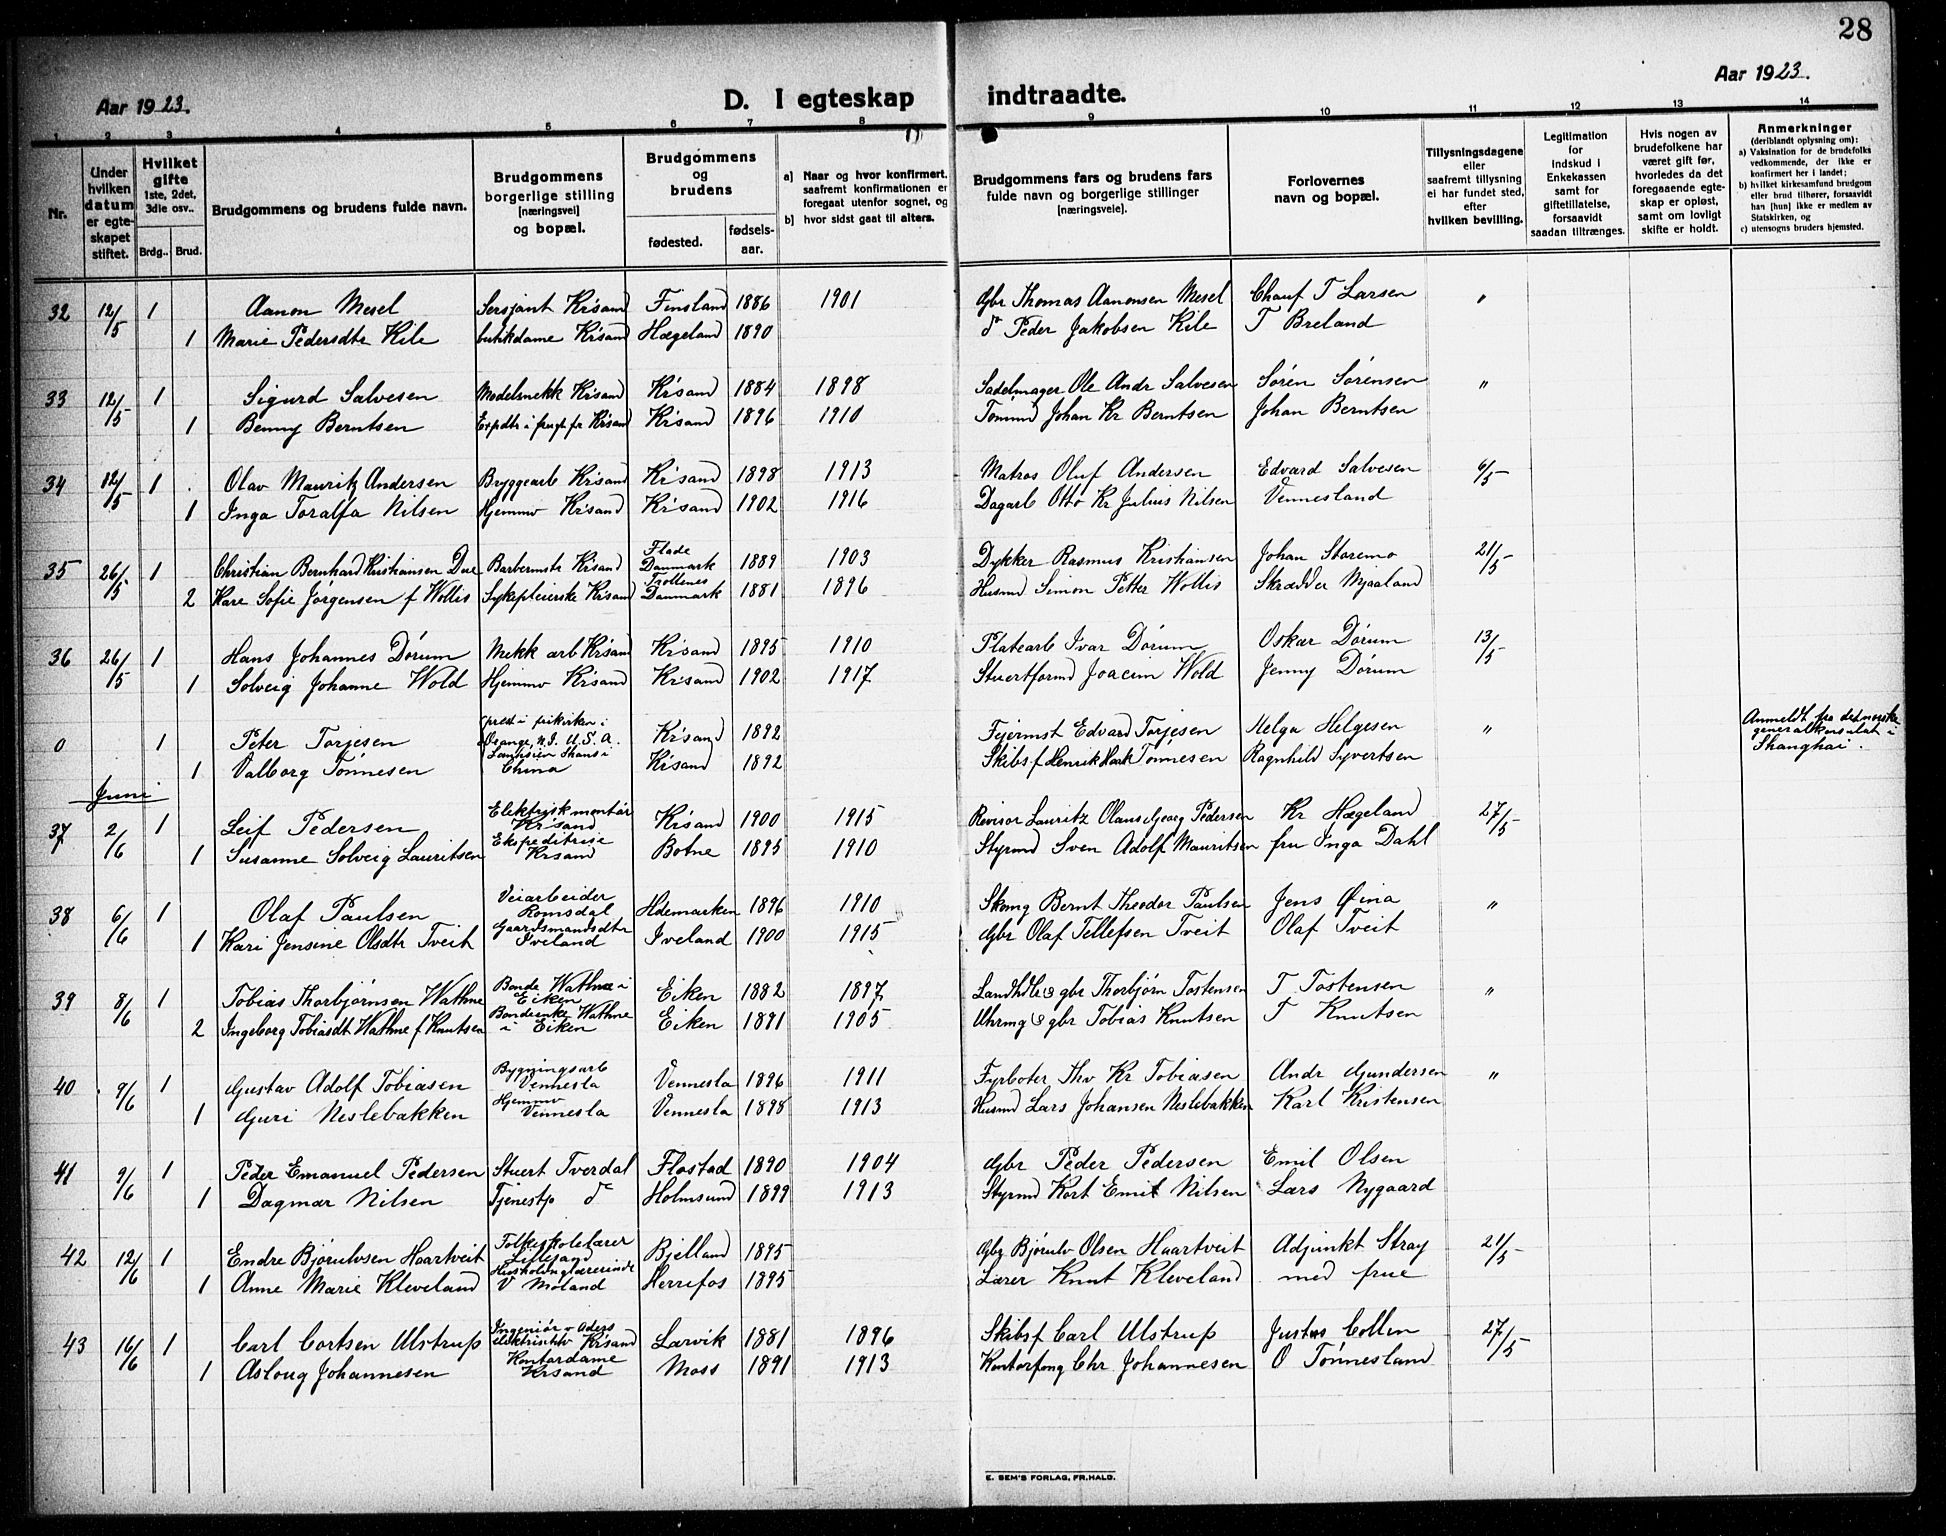 28
Aar 1923.
D. I egteskap indtraadte.
Aar 1923.
1 2 3 4 5 6 7 8 9 10 11 12 13 14
Nr.
Under hvilken datum er egteskapet stiftet.
Hvilket gifte 1ste, 2det, 3die osv..
Brdg.. Brud.
Brudgommens og brudens fulde navn.
Brudgommens borgerlige stilling [næringsvei] og bopæl.
Brudgommens og brudens
fødested. fødselsaar.
a) Naar og hvor konfirmert, saafremt konfirmationen er foregaat utenfor sognet, og
b) hvor sidst gaat til alters.
Brudgommens fars og brudens fars fulde navn og borgerlige stillinger [næringsveie].
Forlovernes navn og bopæl.
Tillysningsdagene eller saafremt tillysning ei har fundet sted, efter hvilken bevilling.
Legitimation for indskud i Enkekassen samt for giftetillatelse, forsaavidt saadan tiltrænges.
Hvis nogen av brudefolkene har været gift før, hvorledes da det foregaaende egteskap er opløst, samt om lovligt skifte er holdt.
Anmerkninger (deriblandt oplysning om):
a) Vaksination for de brudefolks vedkommende, der ikke er konfirmert her i landet;
b) hvilket kirkesamfund brudgom eller brud tilhører, forsaavidt han [hun] ikke er medlem av Statskirken, og
c) utensogns bruders hjemsted.
32 12/5 1 Aanon Mesel Sersjant Krsand Finsland 1886 1901 Gbr Thomas Aanonsen Mesel Chauf T Larsen "
1 Marie Pedersdtr Kile butikdame Krsand Hægeland 1890 do Peder Jakobsen Kile T Breland
33 12/5 1 Sigurd Salvesen Modelsnekk Krsand Krsand 1884 1898 Sadelmager Ole Andr Salvesen Søren Sørensen "
1 Benny Berntsen Expdtr i frugt fr Krsand Krsand 1896 1910 Tømmd Johan Kr Berntsen Johan Berntsen
34 12/5 1 Olav Mauritz Andersen Bryggearb Krsand Krsand 1898 1913 Matros Oluf Andersen Edvard Salvesen 6/5
1 Inga Toralfa Nilsen Hjemmv Krsand Krsand 1902 1916 Dagarb Otto Kr Julius Nilsen Vennesland
35 26/5 1 Christian Bernhard Kristiansen Due Barbermstr Krsand Flade Danmark 1889 1903 Dykker Rasmus Kristiansen Johan Staremo 21/5
2 Kare Sofie Jørgensen f Wollis Sykepleierske Krsand Trollenes Danmark 1881 1896 Husmd Simon Petter Wollis Skrædder Mjaaland
36 26/5 1 Hans Johannes Dørum Mekk arb Krsand Krsand 1895 1910 Platearb Ivar Dørum Oskar Dørum 13/5
1 Solveig Johanne Wold Hjemmv Krsand Krsand 1902 1917 Stuertformd Joacim Wold Jenny Dørum
0 1 Peter Torjesen prest i frikirken i Orange, N.J. U.S.A. Krsand 1892 Fejermst Edvard Torjesen Helga Helgesen " Anmeldt fra det norske generalkonsulat i Shanghai.
1 Valborg Tønnesen Shansi China Krsand 1892 Skibsf Henrik Haak Tønnesen Ragnhild Syvertsen
Juni
37 2/6 1 Leif Pedersen Elektrisk montør Krsand Krsand 1900 1915 Revisor Lauritz Olaus Georg Pedersen Kr Hægeland 27/5
1 Susanne Solveig Lauritsen Ekspeditrise Krsand Botne 1895 1910 Styrmd Sven Adolf Mauritsen fru Inga Dahl
38 6/6 1 Olaf Paulsen Veiarbeider Romsdal Hdemarken 1896 1910 Skomg Bernt Theodor Paulsen Jens Øina "
1 Kari Jensine Olsdtr Tveit Gaardsmandsdtr Iveland Iveland 1900 1915 Gbr Olaf Tellefsen Tveit Olaf Tveit
39 8/6 1 Tobias Thorbjørnsen Wathne Bonde Wathne i Eiken Eiken 1882 1897 Landhdlr & gbr Thorbjørn Tostensen T Tostensen "
2 Ingeborg Tobiasdt Wathne f Knutsen Bondeenke Wathne i Eiken Eiken 1891 1905 Uhrmg & gbr Tobias Knutsen T Knutsen
40 9/6 1 Gustav Adolf Tobiasen Bygningsarb Vennesla Vennesla 1896 1911 Fyrbøter Thv Kr Tobiasen Andr Gundersen "
1 Guri Neslebakken Hjemmv Vennesla Vennesla 1898 1913 Husmd Lars Johansen Neslebakken Karl Kristensen
41 9/6 1 Peder Emanuel Pedersen Stuert Tverdal Flostad 1890 1904 Gbr Peder Pedersen Emil Olsen
1 Dagmar Nilsen Tjenestp do Holmsund 1899 1913 Styrmd Kort Emil Nilsen Lars Nygaard
42 12/6 1 Endre Bjørulvsen Haartveit Folkeskolelærer Lillesand Bjelland 1895 Gbr Bjørulv Olsen Haartveit Adjunkt Stray 21/5
1 Anne Marie Kleveland Husholdnglærerinde V Moland Herrefos 1895 Lærer Knut Kleveland med frue
43 16/6 1 Carl Cortsen Ulstrup Ingeniør v Aders elektrisitetv Krsand Larvik 1881 1896 Skibsf Carl Ulstrup Justus Collin 27/5
1 Aslaug Johannesen Kontordame Krsand Moss 1891 1913 Kontorfmg Chr Johannesen O Tønnesland
E. SEM'S FORLAG, FR.HALD.